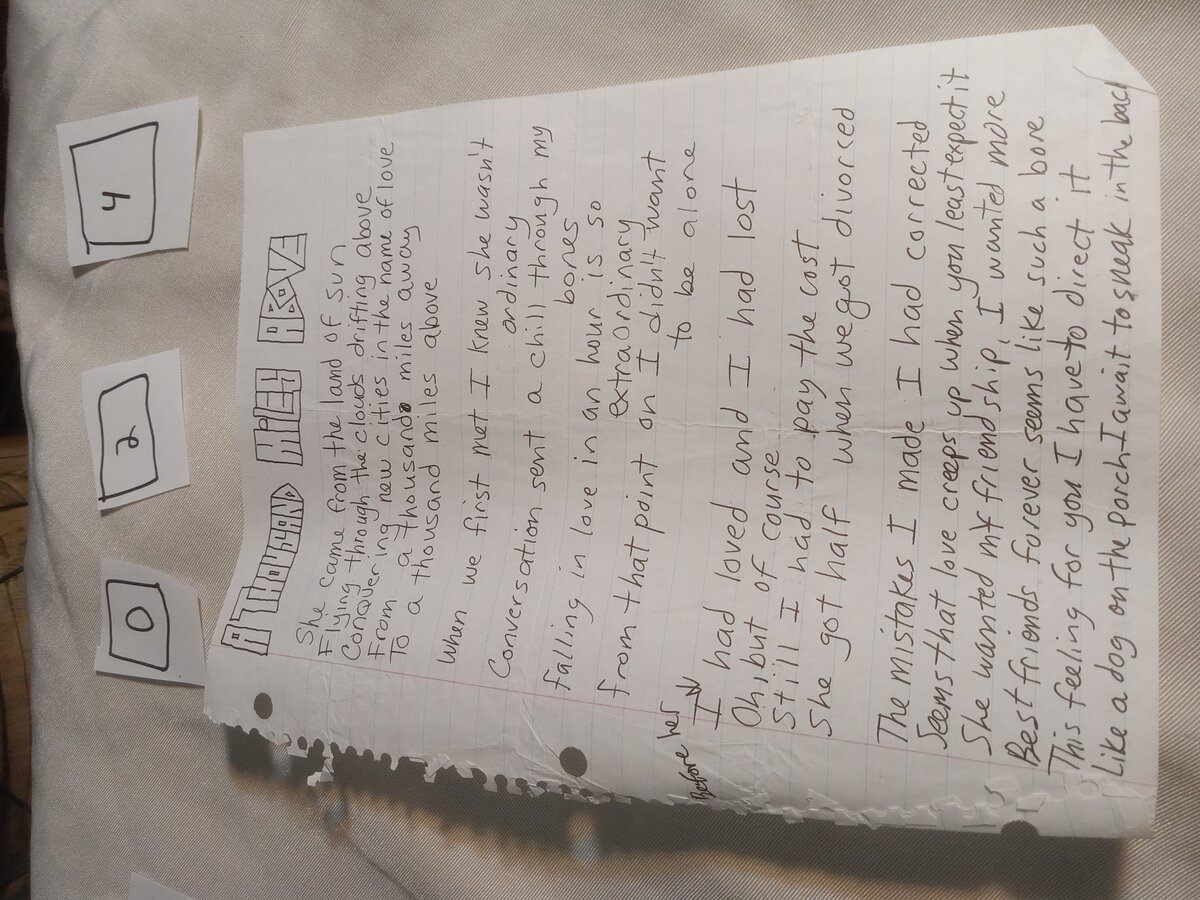 0
2
4
A THOUSAND MILES ABOVE
She came from the land of sun
Flying through the clouds drifting above
Conquering new cities in the name of love
From a thousand miles away
To a thousand miles above
When we first met I knew she wasn't
ordinary
Conversation sent a chill through my
bones
falling in love in an hour is so
extraordinary
from that point on I didn't want
to be alone
Before her
I had loved and I had lost
Oh, but of course
Still I had to pay the cost
She got half when we got divorced
The mistakes I made I had corrected
Seems that love creeps up when you least expect it
She wanted my friendship, I wanted more
Best friends forever seems like such a bore
This feeling for you I have to direct it
Like a dog on the porch I await to sneak in the back